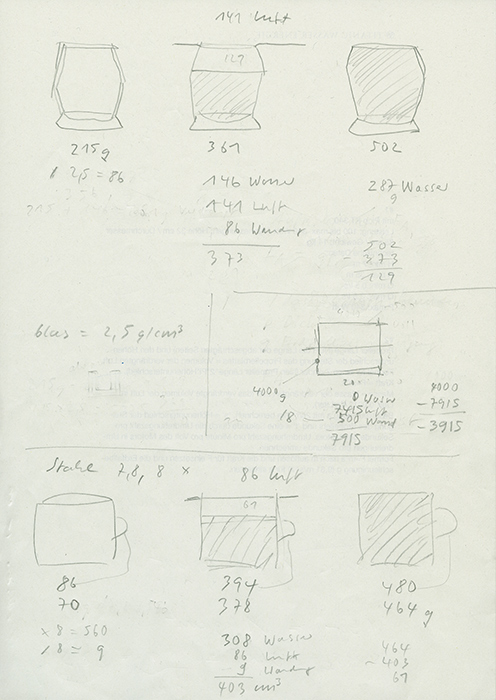 141 Luft
129
215g
361
502
/ 2,5 = 86
146 Wasser
287 Wasser
g
141 Luft
86 Wandung
373
502
- 373
129
Glas = 2,5 g/cm³
4000g
0 Wasser
7415 Luft
/8
500 Wand
7915
4000
- 7915
- 3915
Stahl 7,8, 8 x
86 Luft
61
86
394
480
70
378
464 g
x 8 = 560
/ 8 = 9
308 Wasser
86 Luft
9 Wandung
403 cm³
464
- 403
61